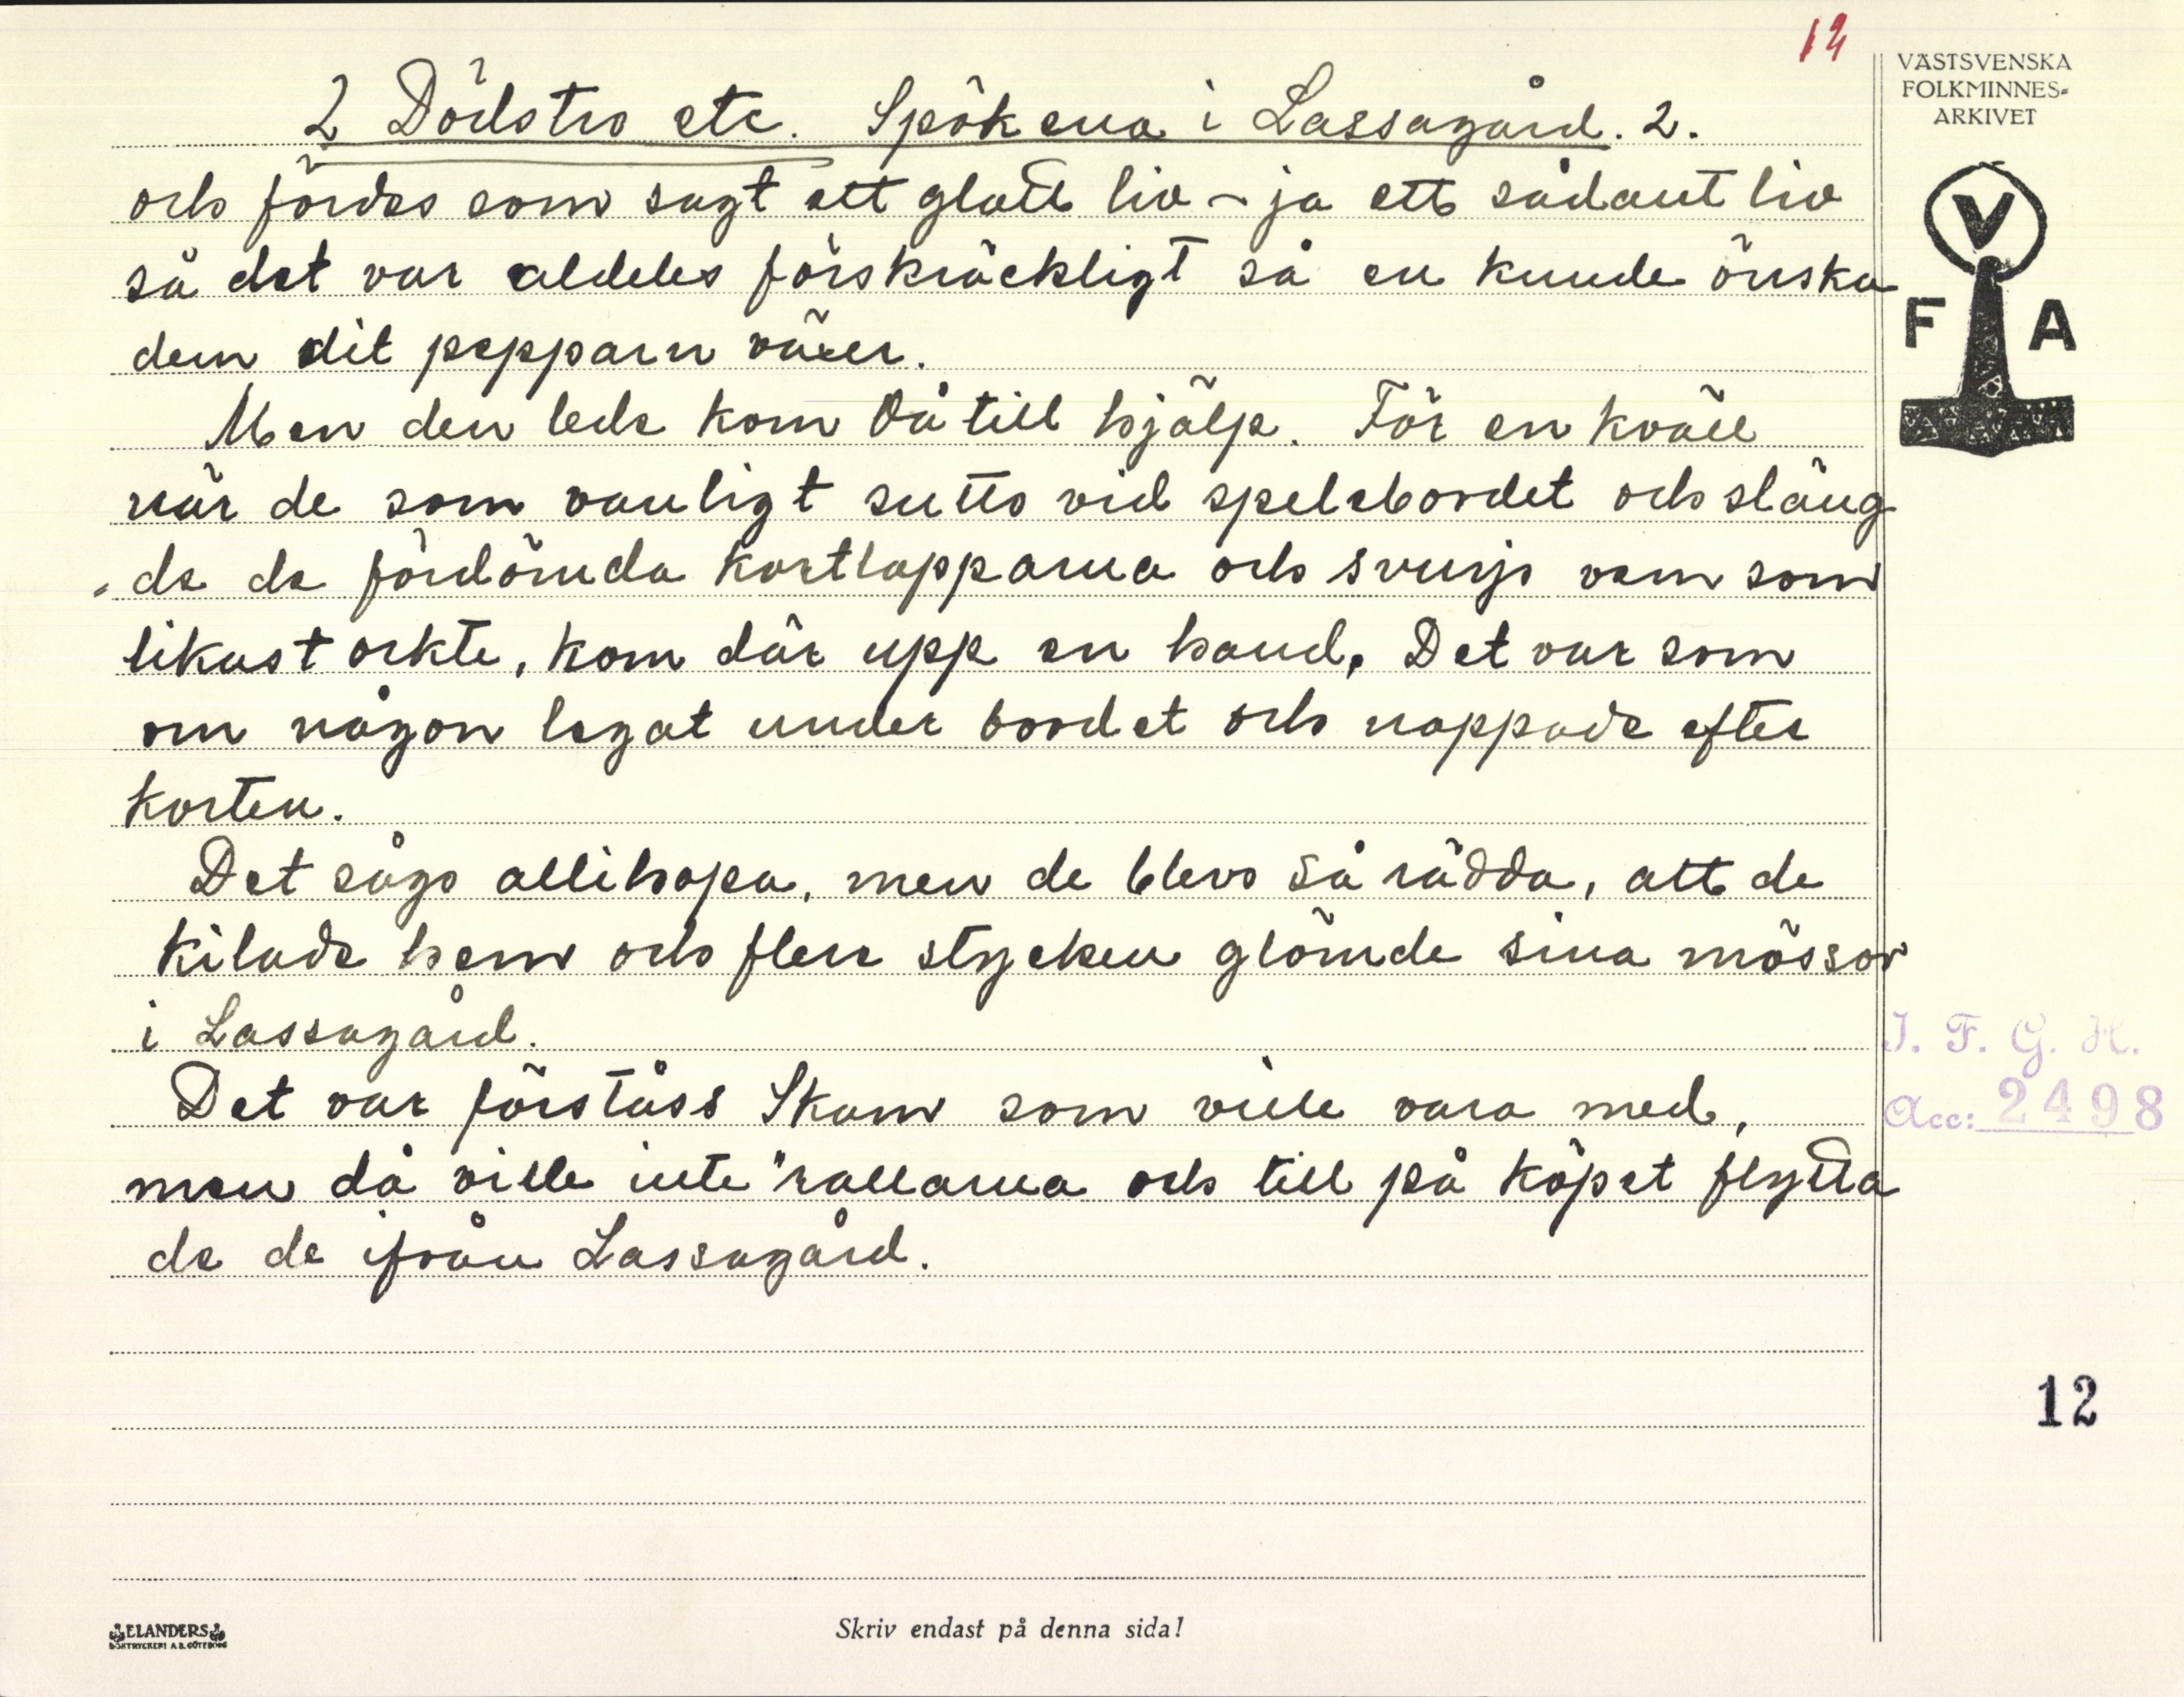 12
VÄSTSVENSKA
FOLKMINNES-
ARKIVET
2 Dödstro etc. Spökena i Lassagård. 2.
och fördes som sagt ett glatt liv - ja ett sådant liv
så det var aldeles förskräckligt så en kunde önska
dem dit pepparn växer.
Men den lede kom då till hjälp. För en kväll
när de som vanligt sutto vid spelebordet och släng
- de de fördömda kortlapparna och svurjo vem som
likast orkte, kom där upp en hand. Det var som
om någon legat under bordet och nappade efter
korten.
Det sågo allihopa, men de blevo så rädda, att de
kilade hem och flere stycken glömde sina mössor
i Lassagård.
Det var förståss Skam som ville vara med,
men då ville inte "rallarna och till på köpet flytta
de de ifrån Lassagård.
V
F A
I. F. G. H.
Acc: 2498
12
ELANDERS
BOKTRYCKERI A.B. GÖTEBORG
Skriv endast på denna sida!